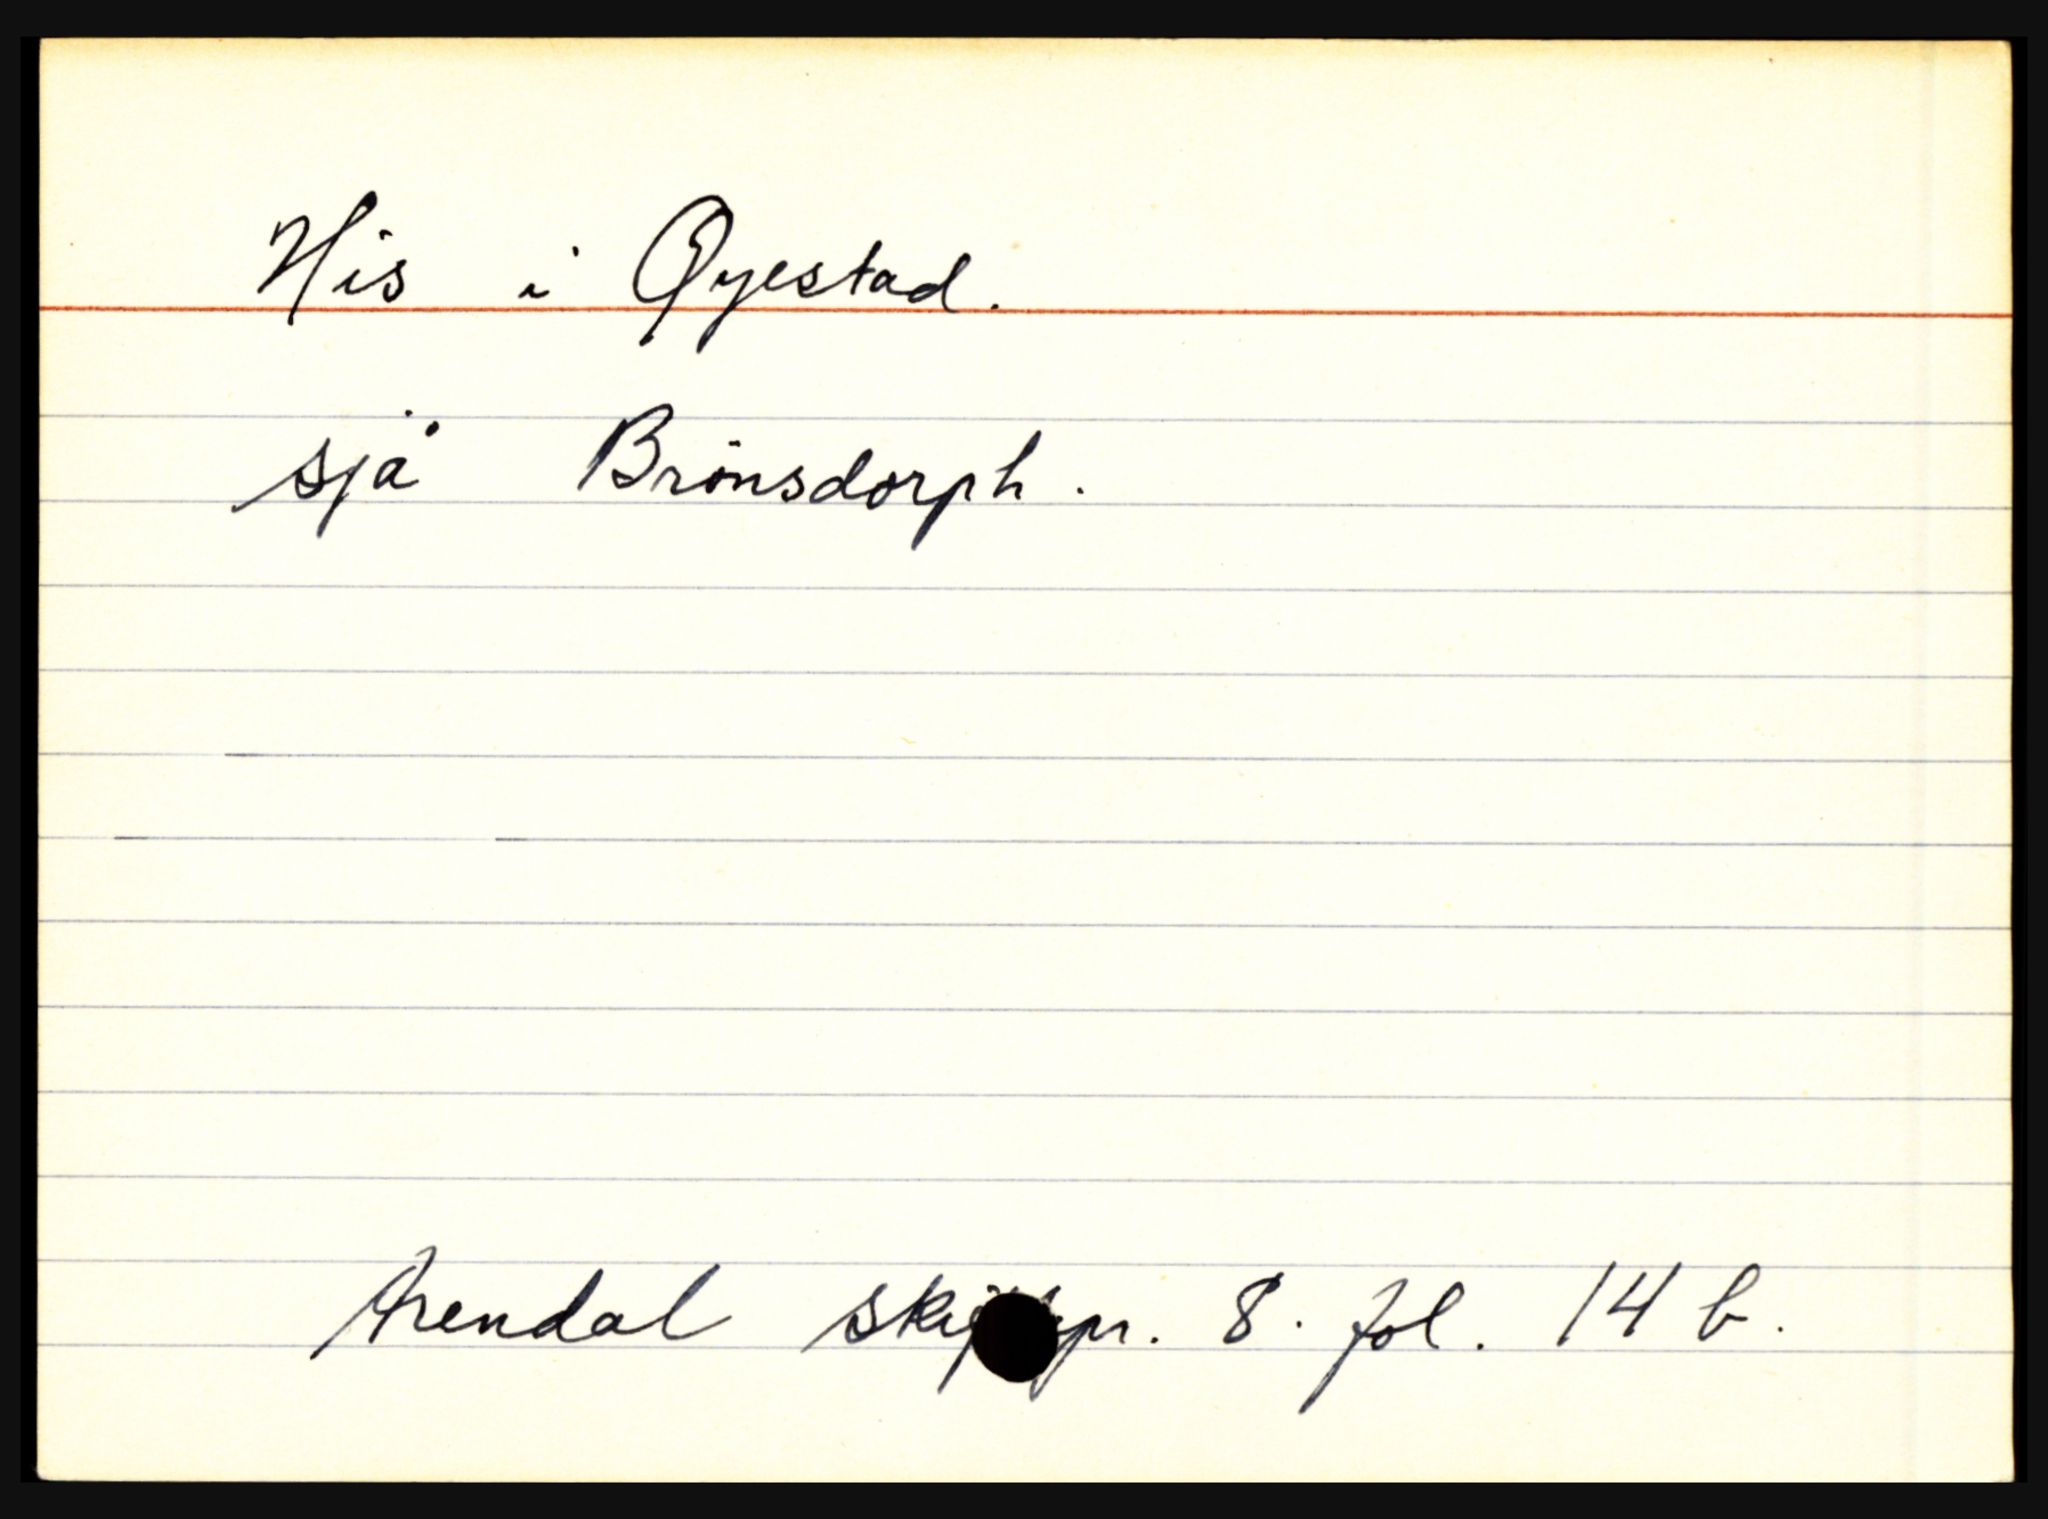 His i Øyestad.
sjå Brønsdorph.
Arendal 8. fol. 14 b.